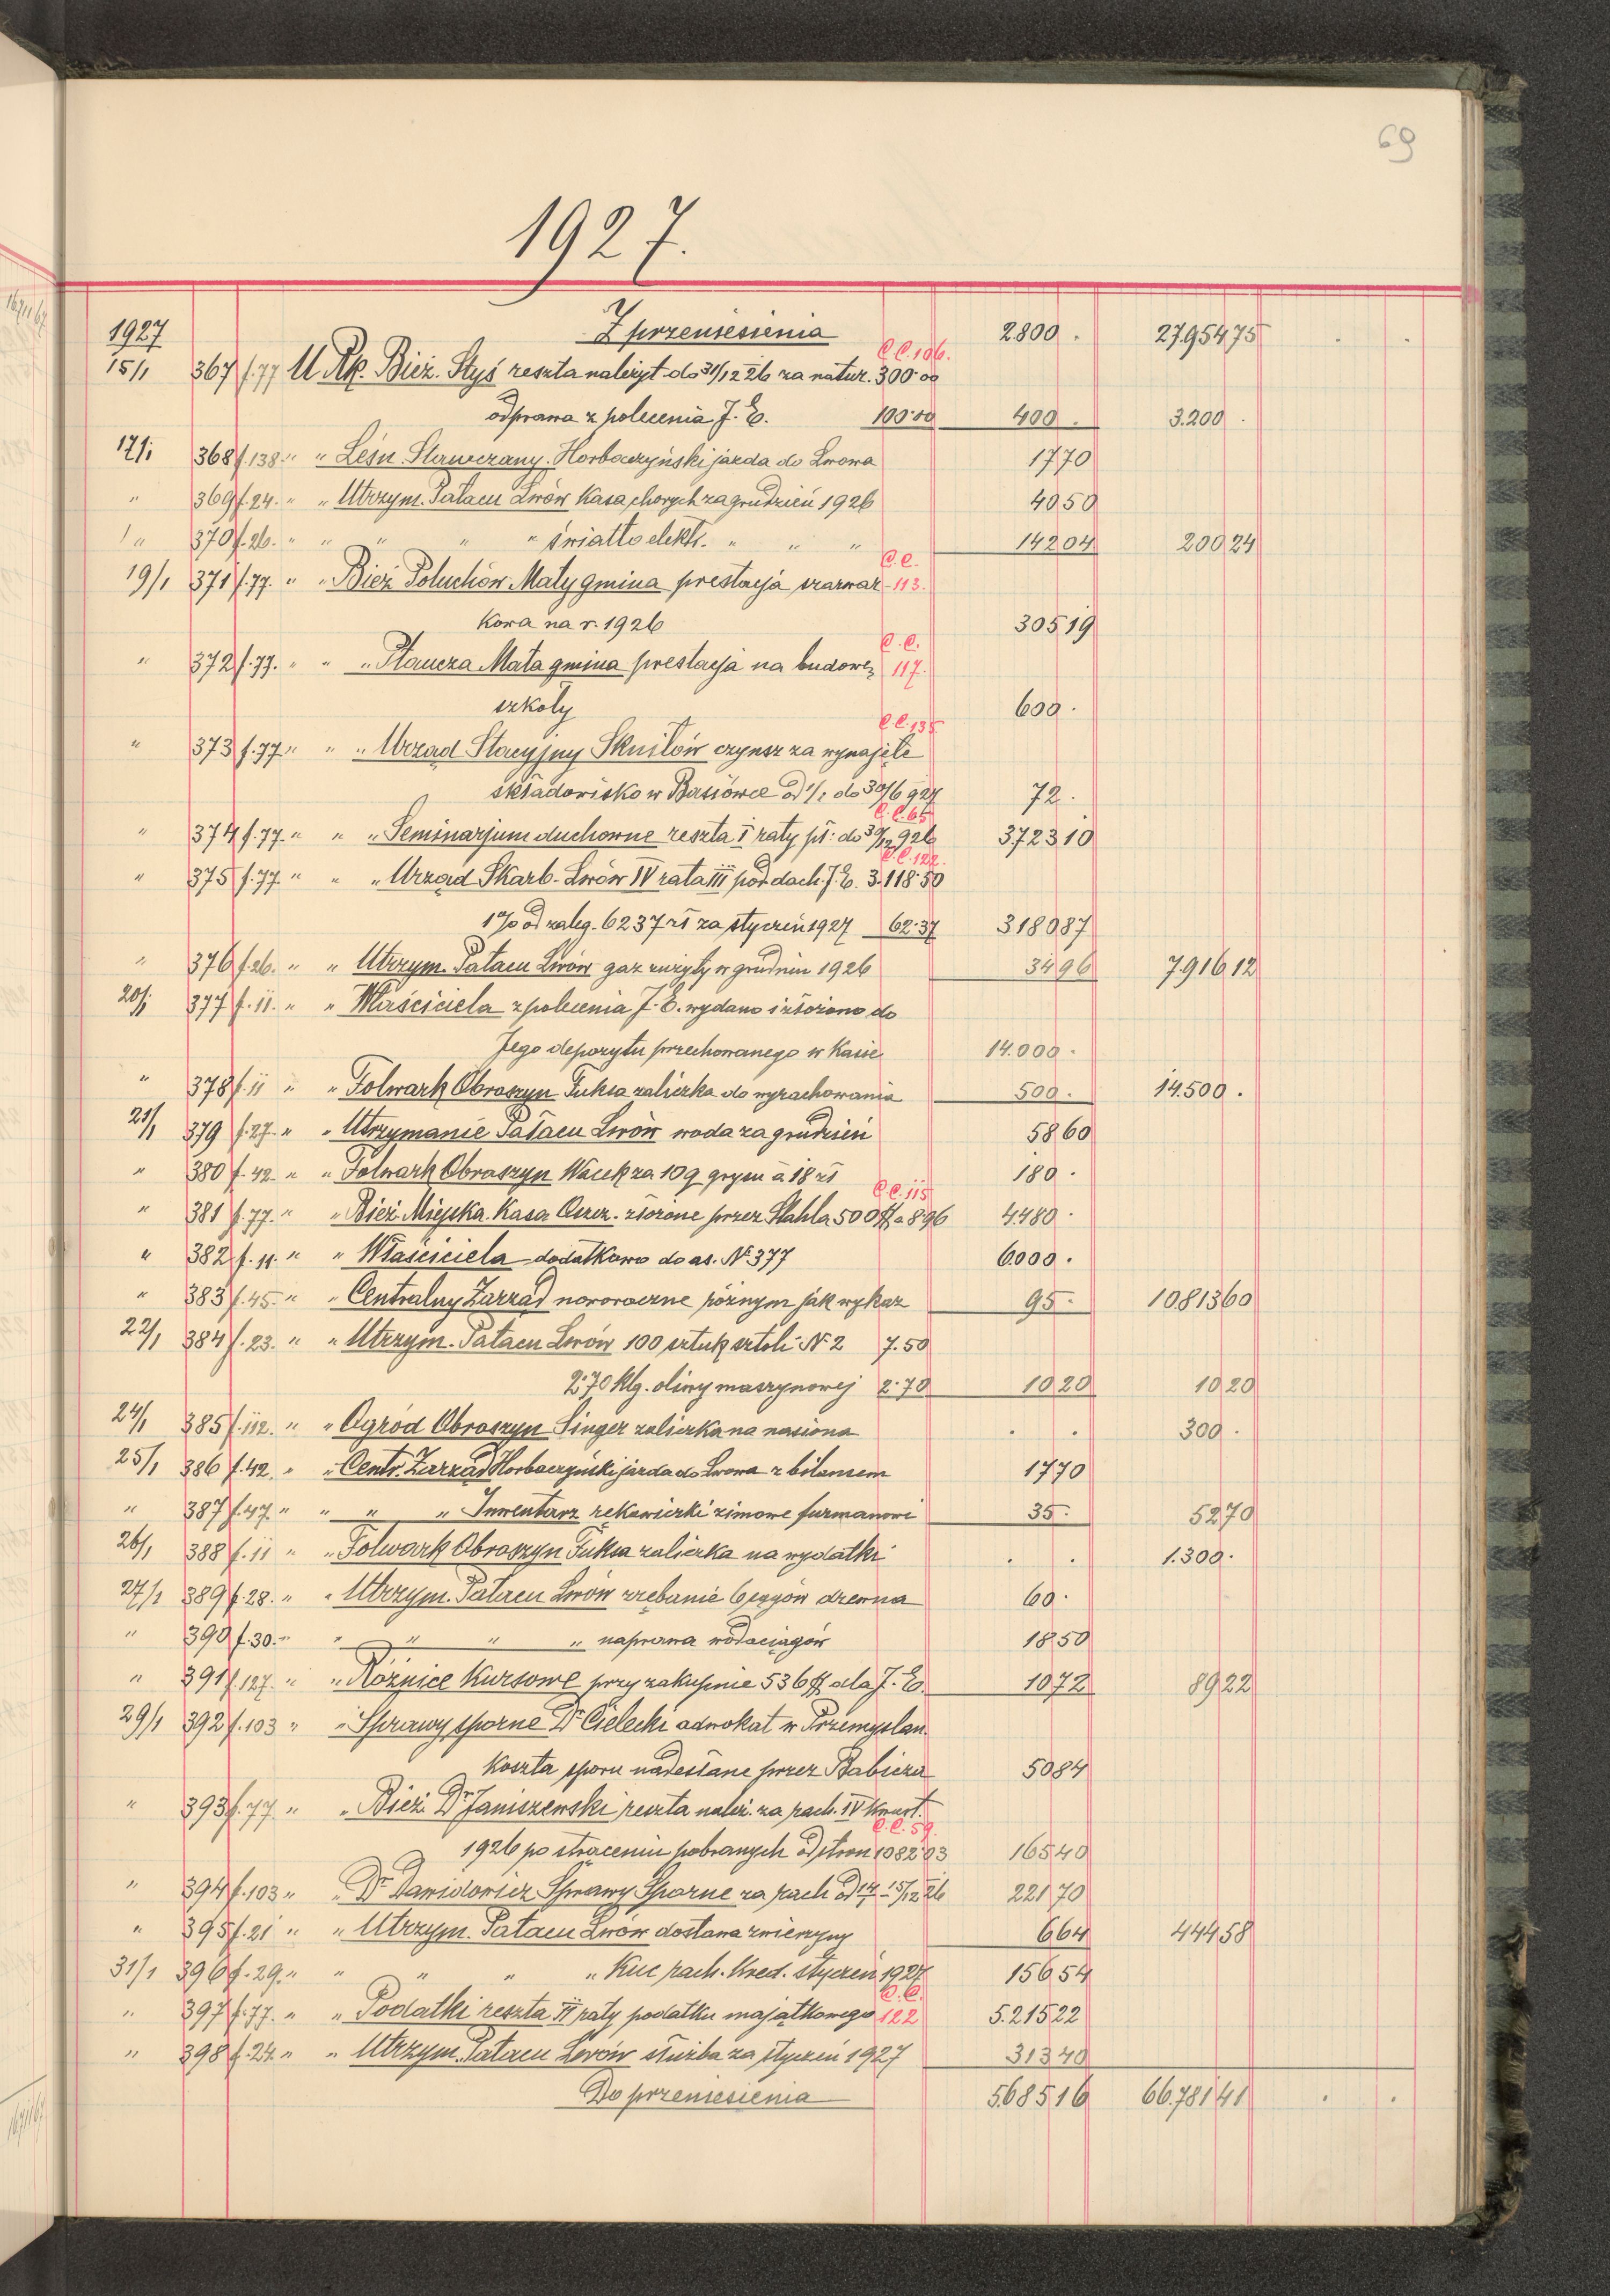 69
1927.
1927 Z przeniesienia 2800 . 27.954 75 . .
15/1 367 f.77 U Rk. Bież. Styś reszta należyt. do 31/12 26 za natur. C.C.106. 300·00
odprawa z polecenia J. E. 100·00 400 . 3.200 .
17/1 368 f.138. " " Leśn. Stawczany. Horbaczyński jazda do Lwowa 17 70
" 369 f.24. " " Utrzym. Pałacu Lwów Kasa chorych za grudzień 1926 40 50
" 370 f.26. " " " " " światło elektr. " " " 142 04 200 24
19/1 371 f.77. " " Bież Poluchów Mały gmina prestacja szarwar- C.C. 113.
kowa na r. 1926 305 19
" 372 f.77. " " " Hancza Mała gmina prestacja na budowę C.C. 117.
szkoły 600 .
" 373 f.77 " " " Urząd Stacyjny Skniłów czynsz za wynajęte C.C.135
składowisko w Basiówce od 1/1 do 30/6 927 72 .
" 374 f.77. " " " Seminarjum duchowne reszta I raty pł: do 31/12 926 C.C.65 3.723 10
" 375 f.77 " " " Urząd Skarb. Lwów IV rata III pod. doch. J. E. C.C.122. 3.118·50
1% od zaleg. 6237 zł za styczeń 1927 62·37 3.180 87
" 376 f.26. " " Utrzym. Pałacu Lwów gaz zużyty w grudniu 1926 34 96 7.916 12
20/1 377 f.11. " " Właściciela z polecenia J. E. wydano i złożono do
Jego depozytu przechowanego w Kasie 14.000 .
" 378 f.11 " " Folwark Obroszyn Fuksa zaliczka do wyrachowania 500 . 14.500 .
21/1 379 f.27. " " Utrzymanie Pałacu Lwów woda za grudzień 58 60
" 380 f.42. " " Folwark Obroszyn Wacek za 10 q grysu à 18 zł 180 .
" 381 f.77. " " Bież Miejska Kasa Oszcz. złożone przez Stahla 500 $ a 8·96 C.C.115 4.480 .
" 382 f.11. " " Właściciela dodatkowo do as. № 377 6.000 .
" 383 f.45. " " Centralny Zarząd noworoczne różnym jak wykaz 95 . 10.813 60
22/1 384 f.23. " " Utrzym. Pałacu Lwów 100 sztuk sztoli № 2 7.50
2·70 klg. oliwy maszynowej 2·70 10 20 10 20
24/1 385 f.112. " " Ogród Obroszyn Singer zaliczka na nasiona . . 300 .
25/1 386 f.42. " " Centr. Zarząd Horbaczyński jazda do Lwowa z bilansem 17 70
" 387 f.47. " " " " Inwentarz rękawiczki zimowe furmanowi 35 . 52 70
26/1 388 f.11 " " Folwark Obroszyn Fuksa zaliczka na wydatki . . 1.300 .
27/1 389 f.28. " " Utrzym. Pałacu Lwów zrębanie 6 sągów drewna 60 .
" 390 f.30. " " " " " naprawa wodociągów 18 50
" 391 f.127. " " Różnice Kursowe przy zakupnie 536 $ dla J. E. 10 72 89 22
29/1 392 f.103 " " Sprawy sporne Dr Cielecki adwokat w Przemyślan.
koszta sporu nadesłane przez Babicza 50 84
" 393 f.77 " " Bież Dr Janiszewski reszta należ. za rach. IV kwart.
1926 po strąceniu pobranych od stron 1082·03 C.C.59. 165 40
" 394 f.103 " " Dr Dawidowicz Sprawy Sporne za rach od 1/7 - 15/12 26 221 70
" 395 f.21 " " Utrzym. Pałacu Lwów dostawa zwierzyny 6 64 444 58
31/1 396 f.29. " " " " " Kuc rach. kred. styczeń 1927 156 54
" 397 f.77. " " Podatki reszta II raty podatku majątkowego C.C. 122 5.215 22
" 398 f.24. " " Utrzym. Pałacu Lwów służba za styczeń 1927 313 40
Do przeniesienia 5.685 16 66.781 41 . .